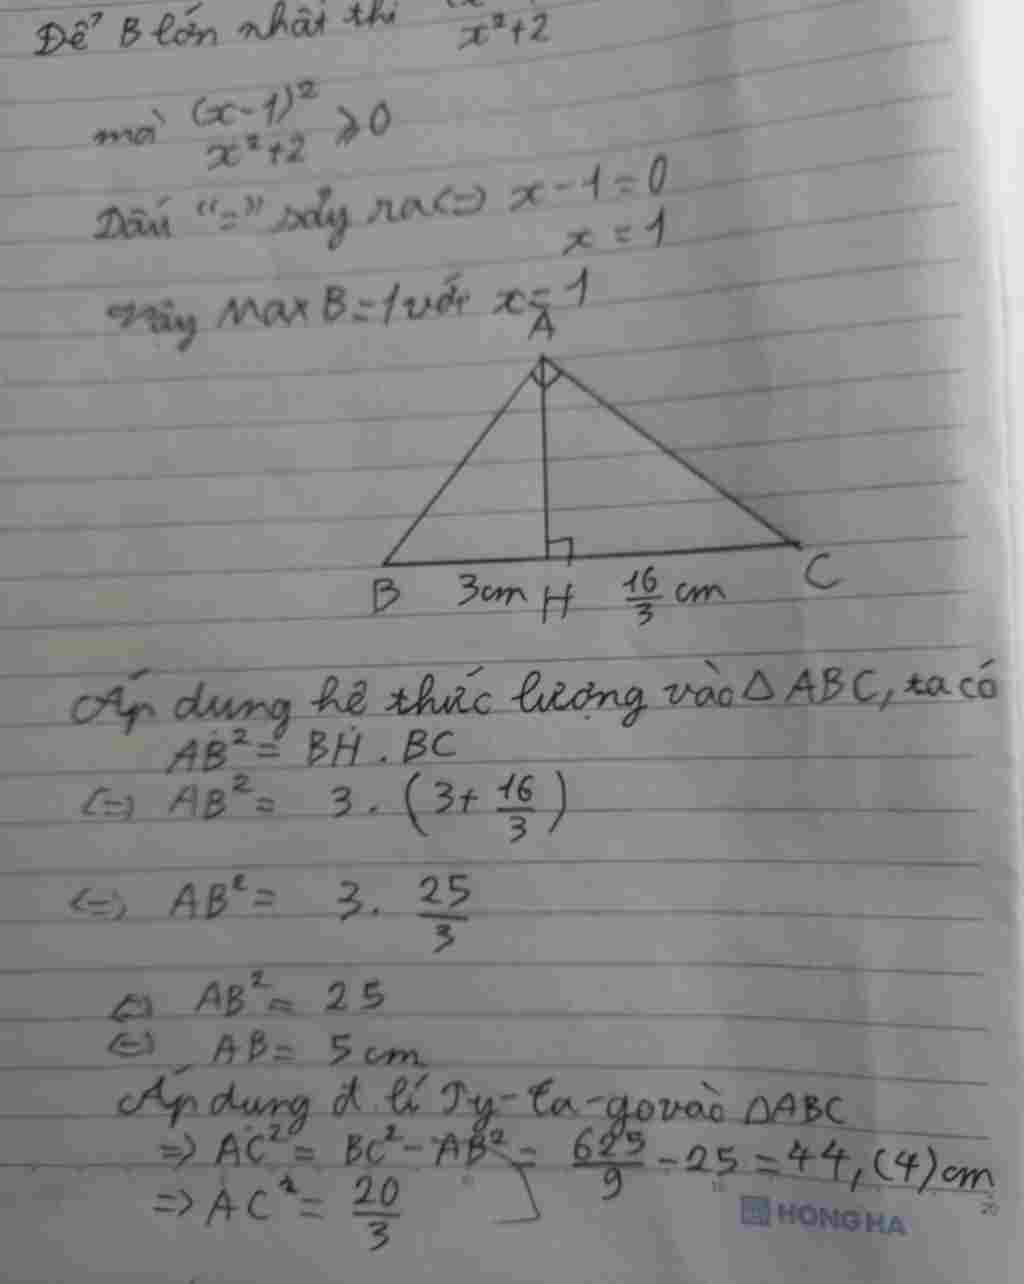 Để B lớn nhất thì x²+2
mà (x-1)²/x²+2 ⩾0
Dấu "=" sảy ra (=) x-1=0
x=1
Vậy Max B=1 với x=1
A
B 3cm H 16/3 cm C
Áp dụng hệ thức lượng vào △ABC, ta có
AB²= BH.BC
(=) AB²= 3.(3+16/3)
(=) AB²= 3.25/3
(=) AB²= 25
(=) AB= 5cm
Áp dụng đ.lí Ty-ta-go vào △ABC
=> AC²= BC²-AB²= 625/9-25=44,(4)cm
=> AC²= 20/3
HONG HA
20